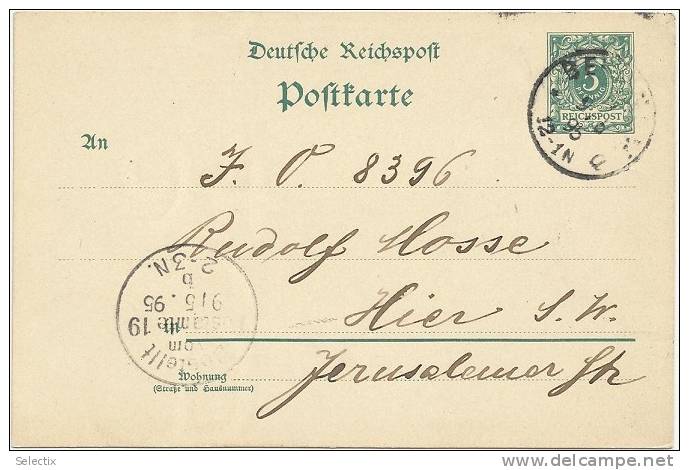 Deutsche Reichspost
Postkarte
5
REICHSPOST
BE
12-1N
An
J. O. 8396
Rudolf Mosse
2-3N.
b
9/5.95
19
Hier S.W.
Jerusalemer Str
Wohnung
(Straße und Hausnummer)
Selectix
www.delcampe.net